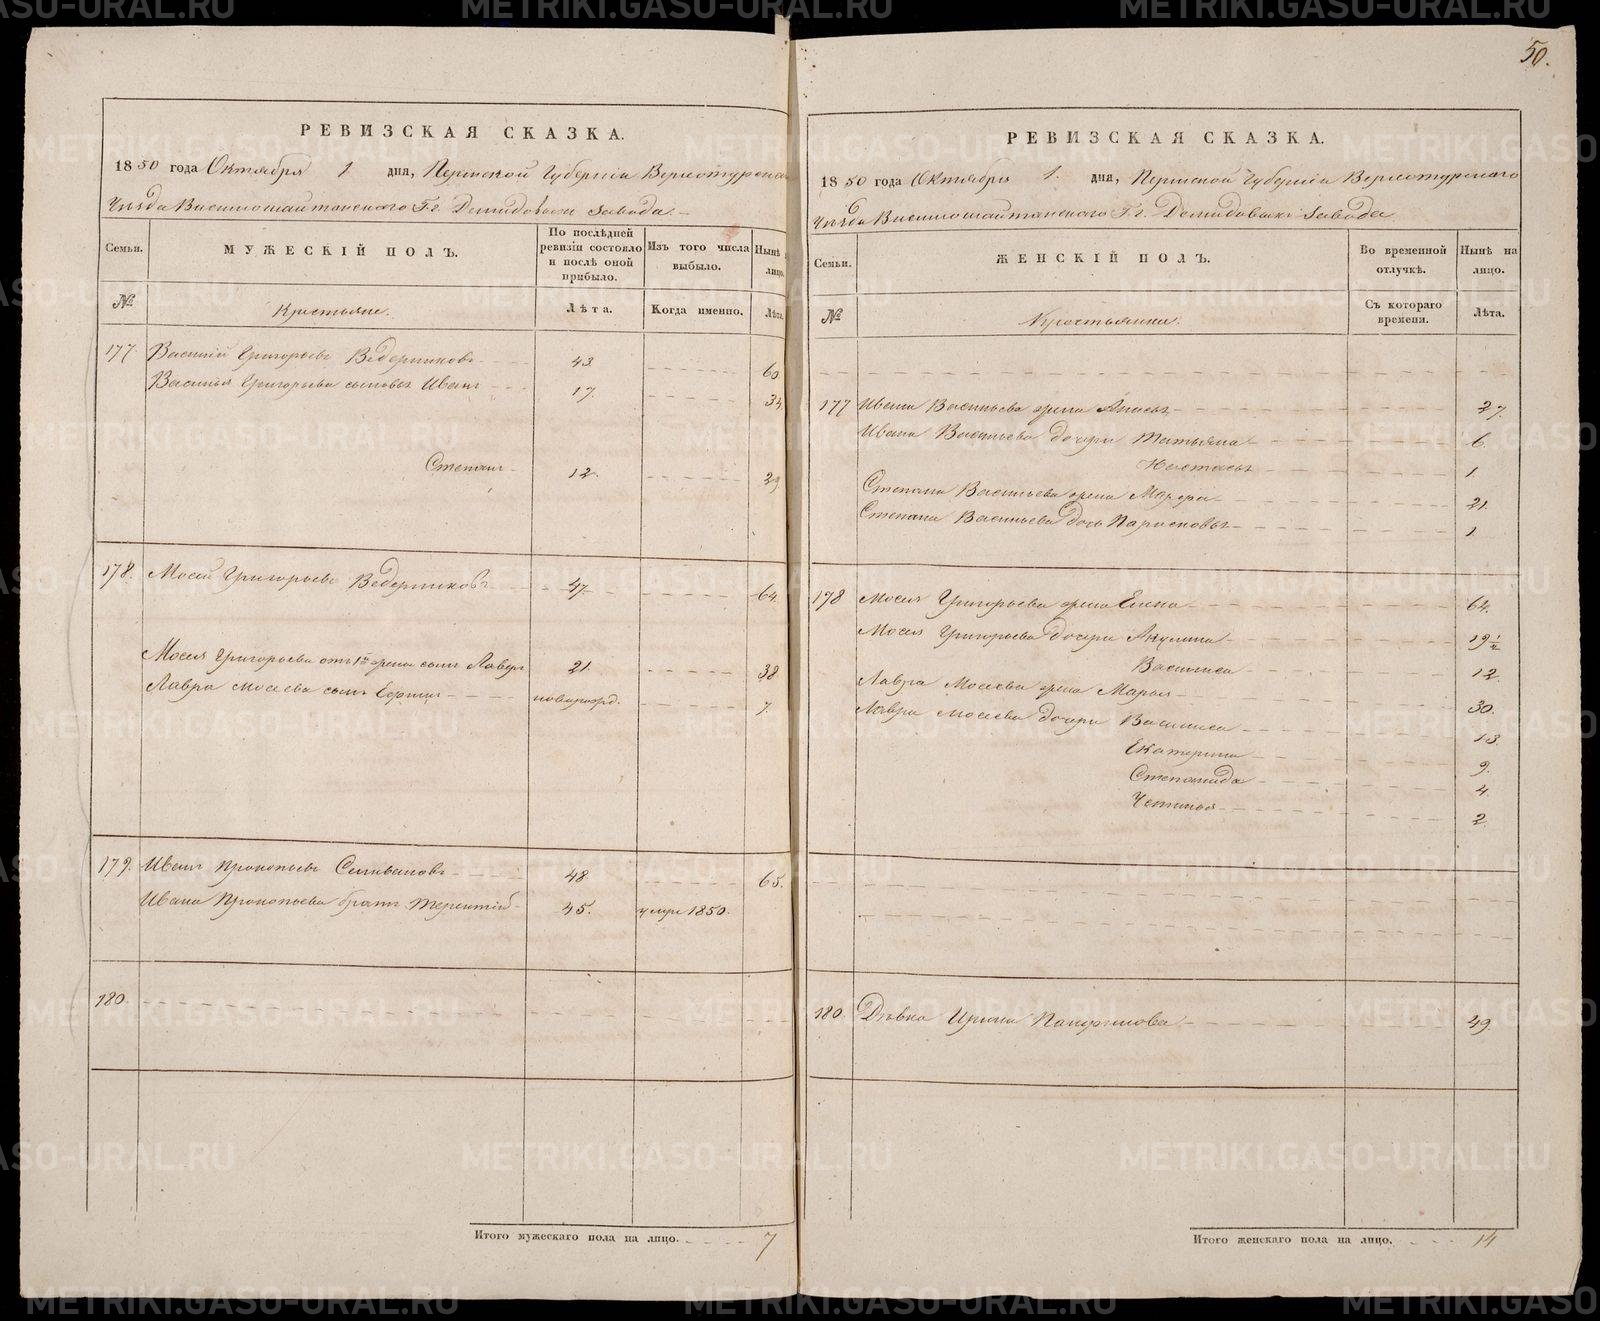 50.
РЕВИЗСКАЯ СКАЗКА.
1850 года Октября 1 дня, Пермской Губерніи Верхотурскаго
Уѣзда Висимошайтанскаго Г.г. Демидовыхъ Завода.
Семьи.
МУЖЕСКІЙ ПОЛЪ.
По послѣдней ревизіи состояло и послѣ оной прибыло.
Изъ того числа выбыло.
Нынѣ на лицо.
№
Крестьяне.
Лѣта.
Когда именно.
Лѣта.
177 Василій Григорьевъ Ведерниковъ 43 60
Василья Григорьева сыновья Иванъ 17. 34.
Степанъ 12. 29
178. Мосей Григорьевъ Ведерниковъ 47 64.
Мосея Григорьева отъ 1й жены сынъ Лавръ 21. 38
Лавра Мосеева сынъ Ефимъ новорожд. 7.
179. Иванъ Прокопьевъ Селивановъ 48 65.
Ивана Прокопьева братъ Терентій 45. умре 1850.
180.
Итого мужескаго пола на лицо. 7
РЕВИЗСКАЯ СКАЗКА.
1850 года Октября 1. дня, Пермской Губерніи Верхотурскаго
Уѣзда Висимошайтанскаго Г.г. Демидовыхъ Завода
Семьи.
ЖЕНСКІЙ ПОЛЪ.
Во временной отлучкѣ.
Нынѣ на лицо.
№
Крестьянки.
Съ котораго времени.
Лѣта.
177 Ивана Васильева жена 27.
Ивана Васильева дочери Татьяна 6.
Настасья 1.
Степана Васильева жена Марфа 21.
Степана Васильева дочь Парасковья 1.
178 Мосея Григорьева жена Елена 64.
Мосея Григорьева дочери Акулина 19½
Василиса 12.
Лавра Мосеева жена Марья 30.
Лавра Мосеева дочери Василиса 13.
Екатерина 9.
Степанида 4.
2.
180. Дѣвка Ирина 49.
Итого женскаго пола на лицо. 14
METRIKI.GASO-URAL.RU